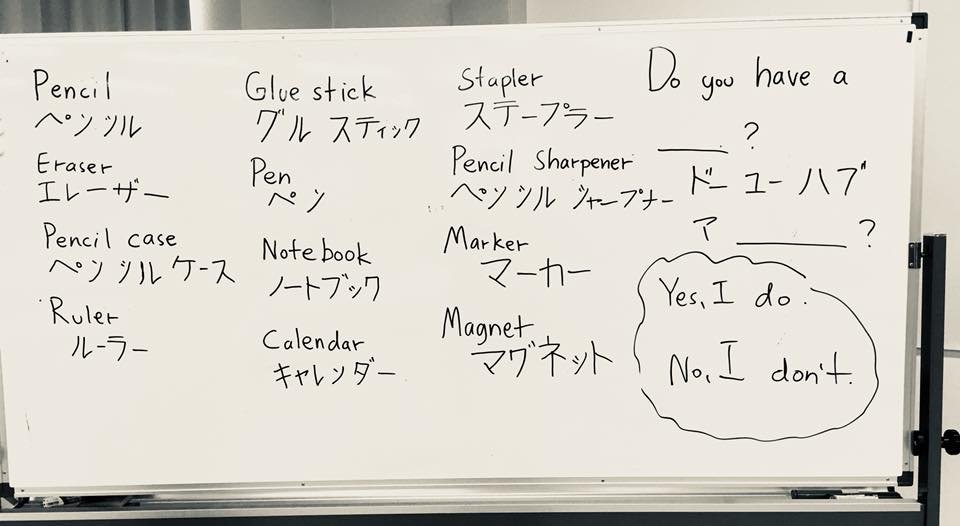 Pencil
ペンシル
Eraser
エレーザー
Pencil case
ペンシルケース
Ruler
ルーラー
Glue stick
グルスティック
Pen
ペン
Notebook
ノートブック
Calendar
キャレンダー
Stapler
ステープラー
Pencil Sharpener
ペンシルシャープナー
Marker
マーカー
Magnet
マグネット
Do you have a
______?
ドーユーハブ
ア ______?
Yes, I do.
No, I don't.